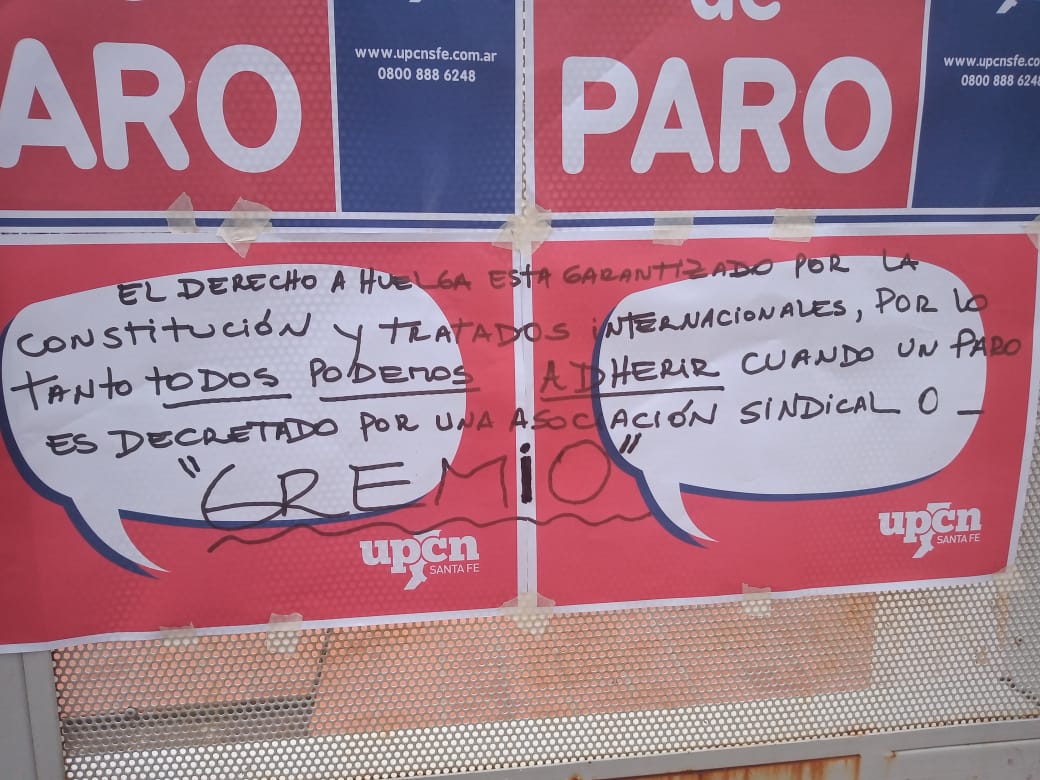 de
ARO
www.upcnsfe.com.ar
0800 888 6248
PARO
www.upcnsfe.co
0800 888 6248
EL DERECHO A HUELGA ESTA GARANTIZADO POR LA
CONSTITUCIÓN Y TRATADOS INTERNACIONALES, POR LO
TANTO TODOS PODEMOS ADHERIR CUANDO UN PARO
ES DECRETADO POR UNA ASOCIACIÓN SINDICAL O _
"GREMiO"
upcn
SANTA FE
upcn
SANTA FE